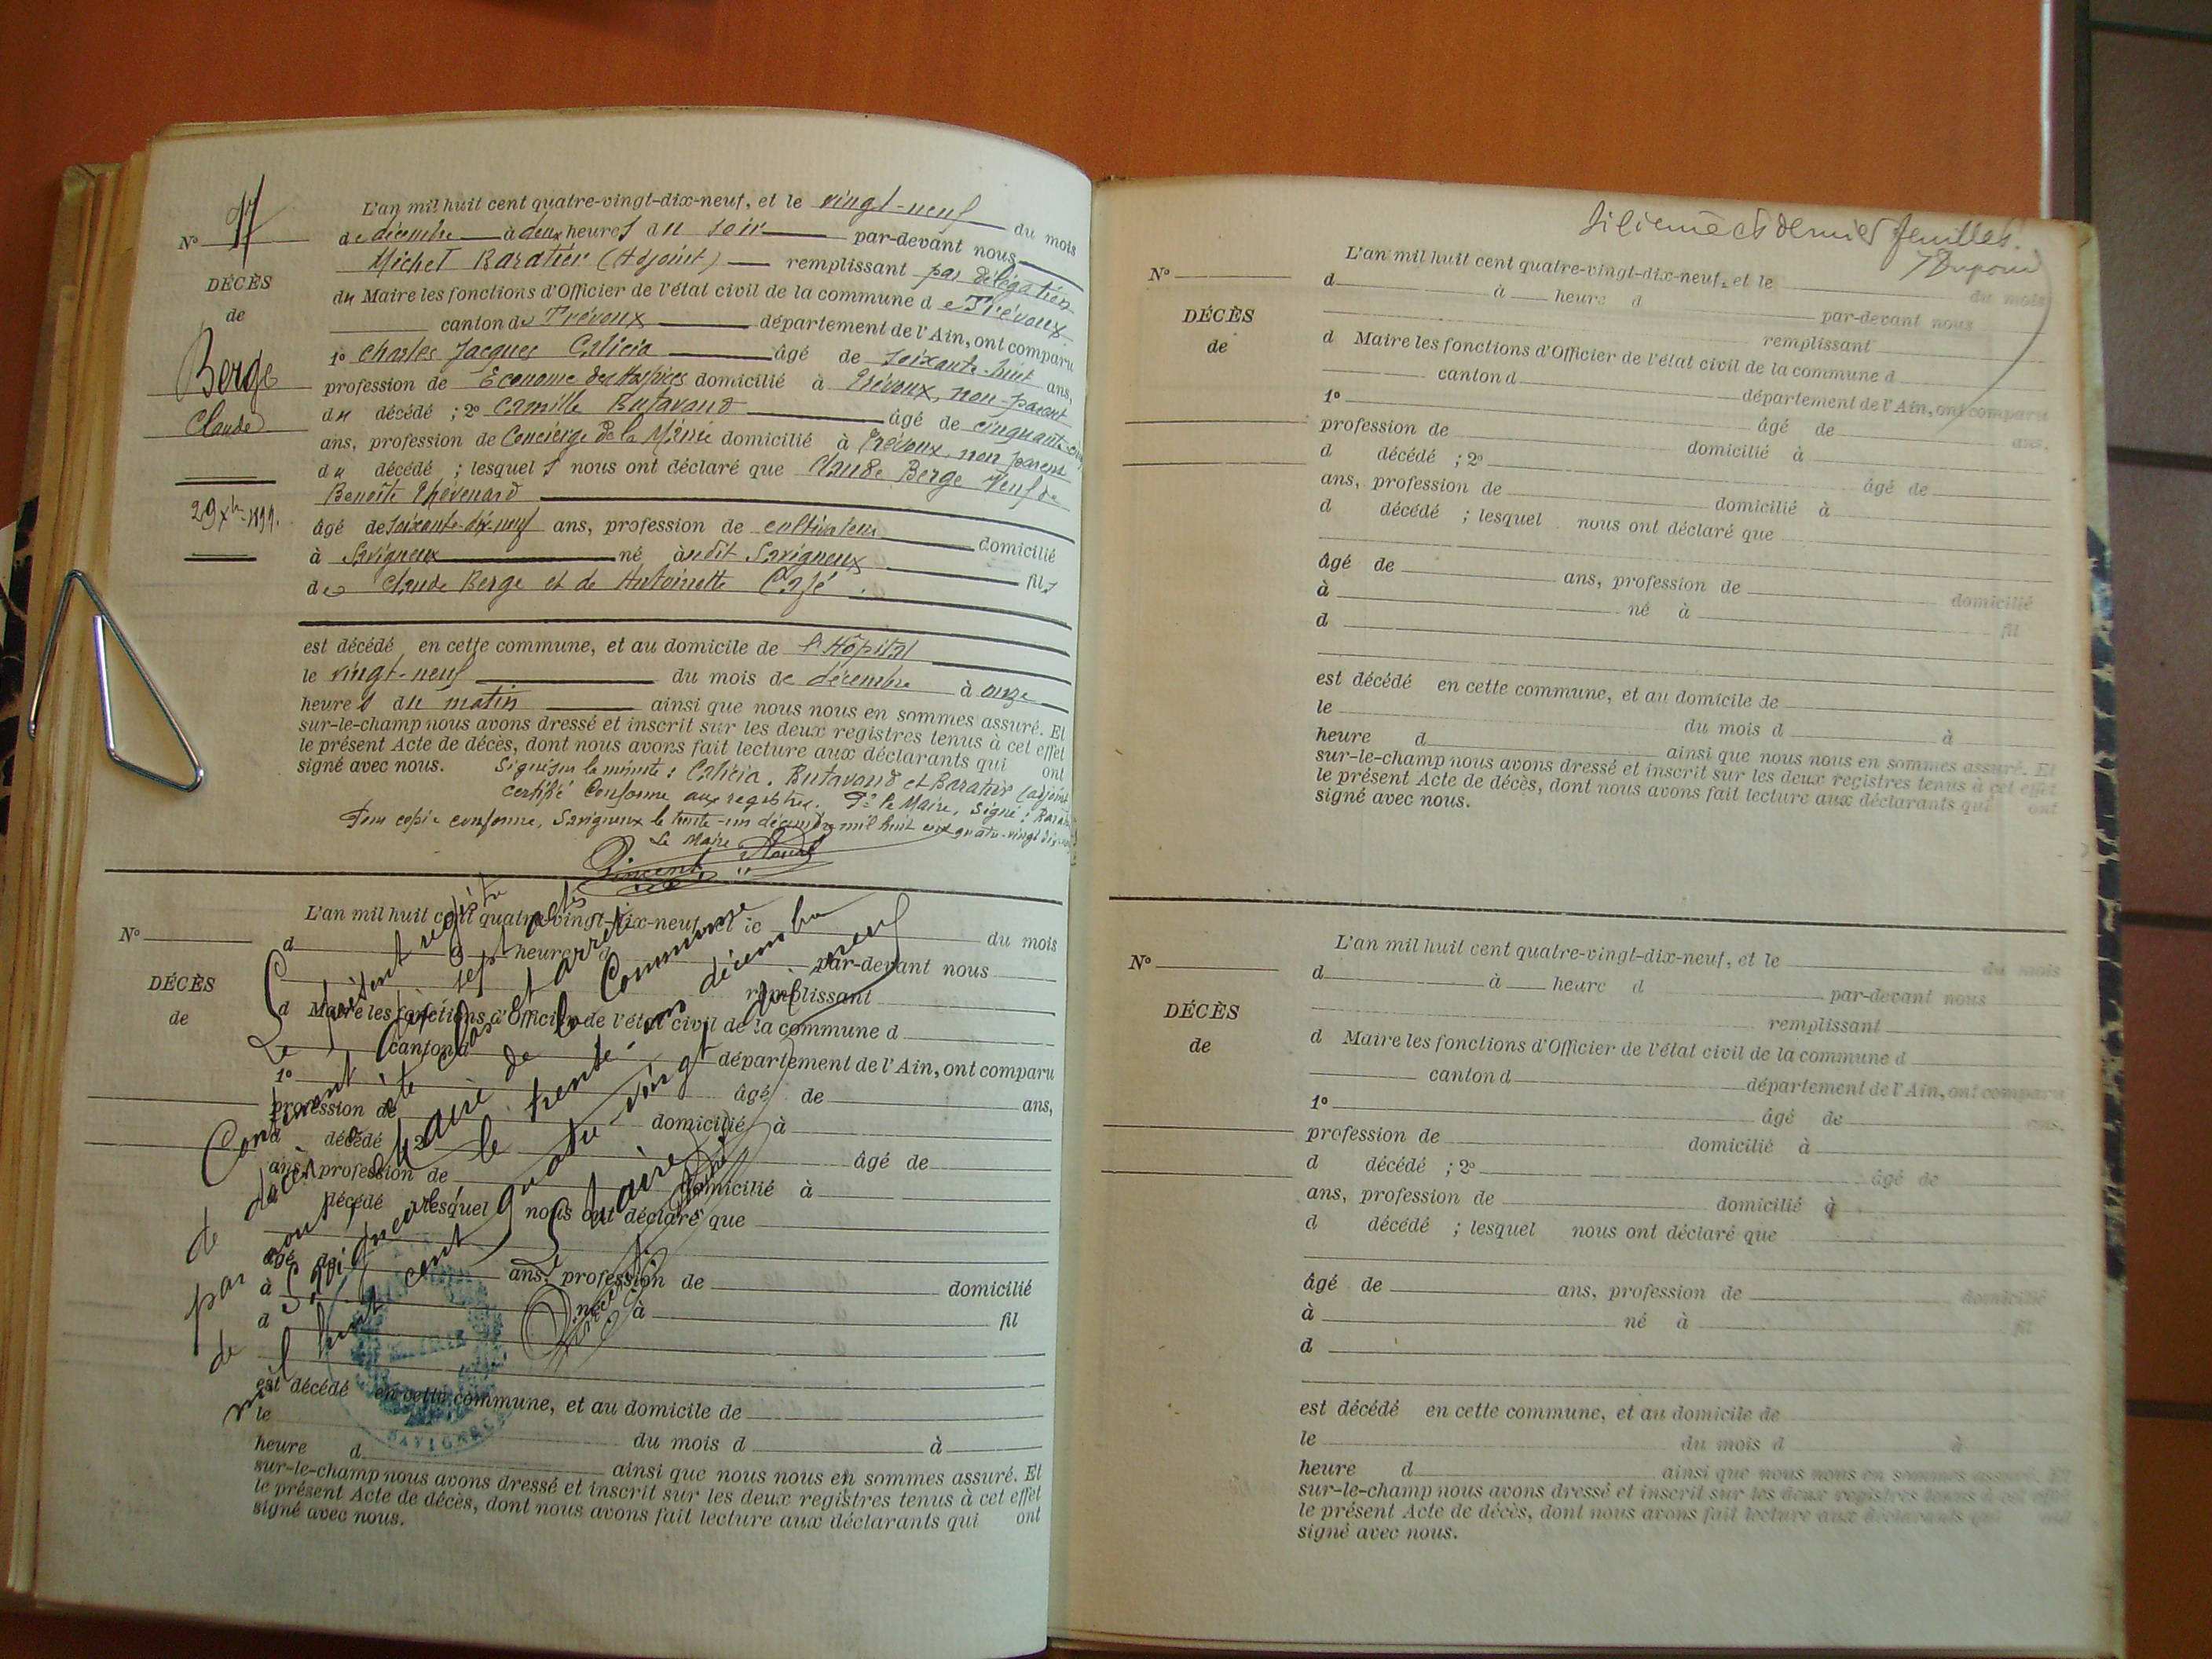 Nº 17
DÉCÈS
de
Berge
Claude
29 Xbre 1899.
L'an mil huit cent quatre-vingt-dix-neuf, et le vingt-neuf du mois
de décembre à deux heures du soir par-devant nous
Michel Baratier (Adjoint) remplissant par délégation
du Maire les fonctions d'Officier de l'état civil de la commune de Trévoux
canton de Trévoux département de l'Ain, ont comparu
1º Charles Jacques Calicia âgé de soixante-huit ans,
profession de Econome des Hospices domicilié à Trévoux, non parent
du décédé ; 2º Camille Butavand âgé de cinquante-cinq
ans, profession de Concierge de la Mairie domicilié à Trévoux, non parent
du décédé ; lesquels nous ont déclaré que Claude Berge Veuf de
Benoîte Thévenard
âgé de soixante-dix-neuf ans, profession de cultivateur domicilié
à Savigneux né audit Savigneux fils
de Claude Berge et de Antoinette
est décédé en cette commune, et au domicile de l'Hôpital
le vingt-neuf du mois de décembre à onze
heures du matin ainsi que nous nous en sommes assuré. Et
sur-le-champ nous avons dressé et inscrit sur les deux registres tenus à cet effet
le présent Acte de décès, dont nous avons fait lecture aux déclarants qui ont
signé avec nous. Signé sur la minute : Calicia, Butavand et Baratier (adjoint
Certifié Conforme aux registres. Pr le Maire, Signé : Baratier
Pour copie conforme, Savigneux le trente-un décembre mil huit cent quatre-vingt-dix-neuf
Le Maire
Nº
DÉCÈS
de
L'an mil huit cent quatre-vingt-dix-neuf, et le du mois
d à heure d par-devant nous
remplissant
d Maire les fonctions d'Officier de l'état civil de la commune d
canton d département de l'Ain, ont comparu
1º âgé de ans,
profession de domicilié à
d décédé ; 2º âgé de
ans, profession de domicilié à
d décédé ; lesquel nous ont déclaré que
âgé de ans, profession de domicilié
à né à fil
d
est décédé en cette commune, et au domicile de
le du mois d à
heure d ainsi que nous nous en sommes assuré. Et
sur-le-champ nous avons dressé et inscrit sur les deux registres tenus à cet effet
le présent Acte de décès, dont nous avons fait lecture aux déclarants qui ont
signé avec nous.
Le présent registre
Contenant dix sept actes
de décès a été clos et arrêté
par nous, Maire de la Commune
de Savigneux le trente-un décembre
mil huit cent quatre-vingt dix neuf
Le Maire
MAIRIE
SAVIGNEUX
et dernier feuillet.
Nº
DÉCÈS
de
L'an mil huit cent quatre-vingt-dix-neuf, et le du mois
d à heure d par-devant nous
remplissant
d Maire les fonctions d'Officier de l'état civil de la commune d
canton d département de l'Ain, ont comparu
1º âgé de ans,
profession de domicilié à
d décédé ; 2º âgé de
ans, profession de domicilié à
d décédé ; lesquel nous ont déclaré que
âgé de ans, profession de domicilié
à né à fil
d
est décédé en cette commune, et au domicile de
le du mois d à
heure d ainsi que nous nous en sommes assuré. Et
sur-le-champ nous avons dressé et inscrit sur les deux registres tenus à cet effet
le présent Acte de décès, dont nous avons fait lecture aux déclarants qui ont
signé avec nous.
Nº
DÉCÈS
de
L'an mil huit cent quatre-vingt-dix-neuf, et le du mois
d à heure d par-devant nous
remplissant
d Maire les fonctions d'Officier de l'état civil de la commune d
canton d département de l'Ain, ont comparu
1º âgé de ans,
profession de domicilié à
d décédé ; 2º âgé de
ans, profession de domicilié à
d décédé ; lesquel nous ont déclaré que
âgé de ans, profession de domicilié
à né à fil
d
est décédé en cette commune, et au domicile de
le du mois d à
heure d ainsi que nous nous en sommes assuré. Et
sur-le-champ nous avons dressé et inscrit sur les deux registres tenus à cet effet
le présent Acte de décès, dont nous avons fait lecture aux déclarants qui ont
signé avec nous.